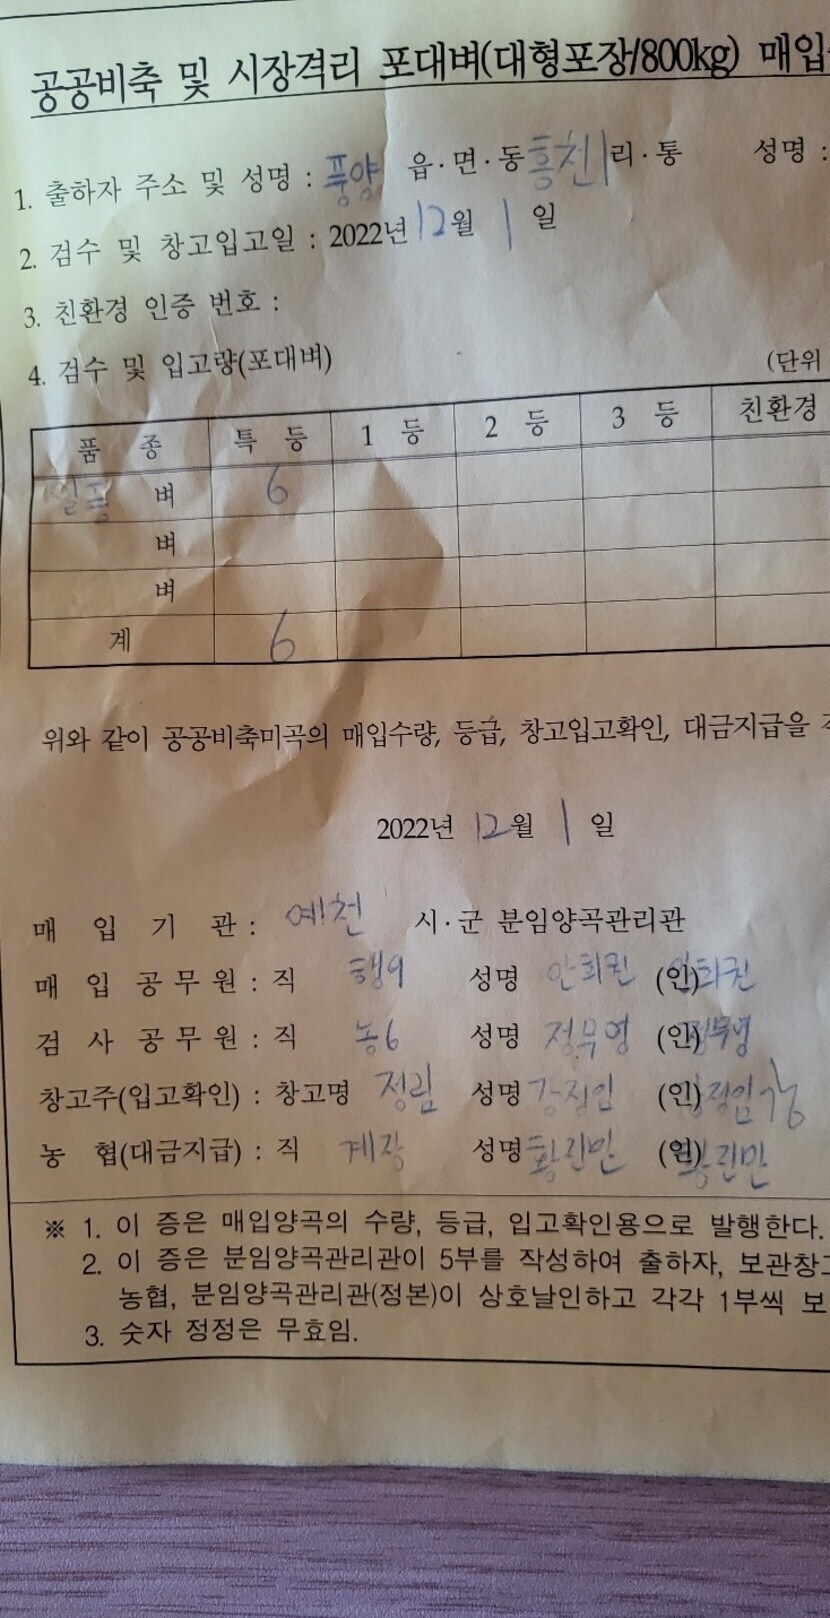 공공비축 및 시장격리 포대벼(대형포장/800kg) 매입
1. 출하자 주소 및 성명 : 풍양 읍·면·동 흥천1 리·통 성명 :
2. 검수 및 창고입고일 : 2022년 12월 1일
3. 친환경 인증 번호 :
4. 검수 및 입고량(포대벼)
(단위
품 종 특 등 1 등 2 등 3 등 친환경
일품 벼 6
벼
벼
계 6
위와 같이 공공비축미곡의 매입수량, 등급, 창고입고확인, 대금지급을
2022년 12월 1일
매 입 기 관 : 예천 시·군 분임양곡관리관
매 입 공 무 원 : 직 행9 성명 안희권 (인) 안희권
검 사 공 무 원 : 직 농6 성명 정무영 (인) 정무영
창고주(입고확인) : 창고명 정림 성명 강정임 (인)
농 협(대금지급) : 직 계장 성명 황진만 (인) 황진만
※ 1. 이 증은 매입양곡의 수량, 등급, 입고확인용으로 발행한다.
2. 이 증은 분임양곡관리관이 5부를 작성하여 출하자, 보관창고
농협, 분임양곡관리관(정본)이 상호날인하고 각각 1부씩 보
3. 숫자 정정은 무효임.